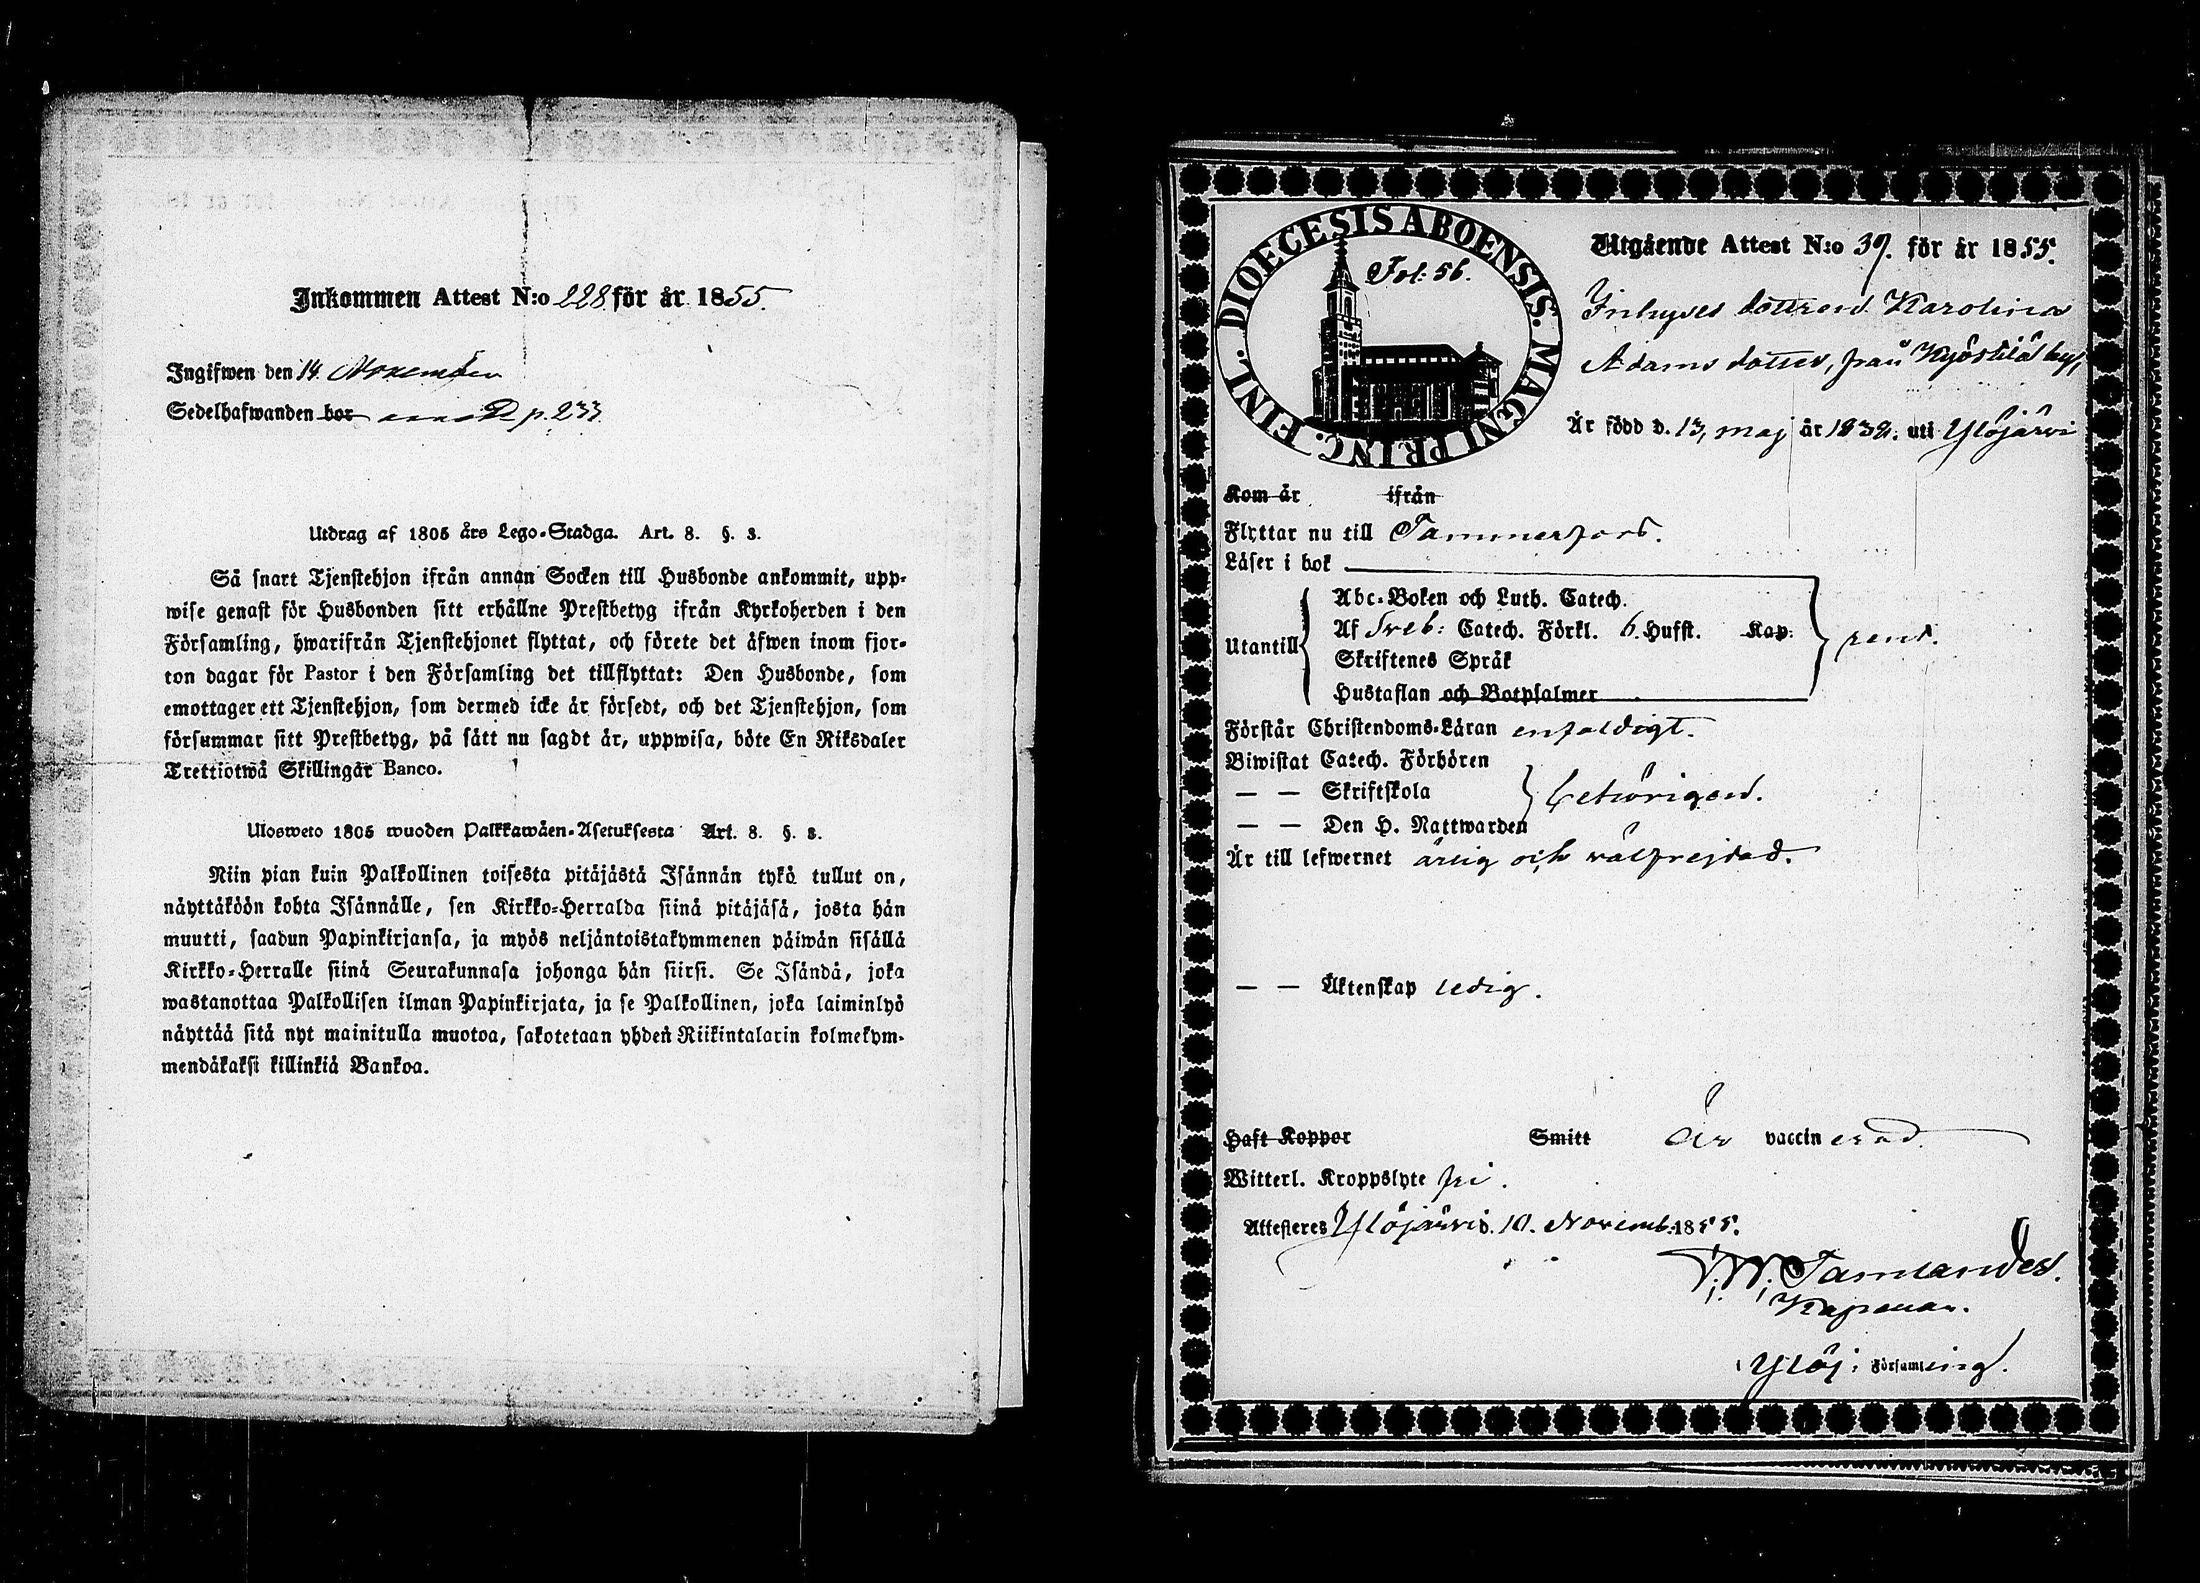 Inkommen Attest N:o 228 för år 1855.
Ingifwen den 14 November
Sedelhafwanden bor p. 233
Utdrag af 1805 års Lego-Stadga. Art. 8. §. 3.
Så snart Tjenstehjon ifrån annan Socken till Husbonde ankommit, upp-
wise genast för Husbonden sitt erhållne Prestbetyg ifrån Kyrkoherden i den
Församling, hwarifrån Tjenstehjonet flyttat, och förete det äfwen inom fjor-
ton dagar för Pastor i den Församling det tillflyttat: Den Husbonde, som
emottager ett Tjenstehjon, som dermed icke är försedt, och det Tjenstehjon, som
försummar sitt Prestbetyg, på sätt nu sagdt är, uppwisa, böte En Riksdaler
Trettiotwå Skillingar Banco.
Ulosweto 1805 wuoden Palkkawäen-Asetuksesta Art. 8. §. 3.
Niin pian kuin Palkollinen toisesta pitäjästä Isännän tykö tullut on,
näyttäköön kohta Isännälle, sen Kirkko-Herralda siinä pitäjäsä, josta hän
muutti, saadun Papinkirjansa, ja myös neljäntoistakymmenen päiwän sisällä
Kirkko-Herralle siinä Seurakunnasa johonga hän siirsi. Se Isändä, joka
wastanottaa Palkollisen ilman Papinkirjata, ja se Palkollinen, joka laiminlyö
näyttää sitä nyt mainitulla muotoa, sakotetaan yhden Riikintalarin kolmekym-
mendäkaksi killinkiä Bankoa.
DIOECESIS ABOENSIS. MAGNI PRINC. FINL.
Fol: 56.
Utgående Attest N:o 39. för år 1855.
Inhyses dottren Karolina
Adams dotter, från Kyöstilä by,
Är född d. 13, maj år 1832. uti Ylöjärvi
Kom år ifrån
Flyttar nu till Tammerfors.
Läser i bok
Utantill
Abc-Boken och Luth. Catech.
Af Sveb: Catech. Förkl. 6. Hufst. Kap:
Skriftenes Språk
Hustaflan och Botpsalmer
rent.
Förstår Christendoms-Läran enfaldigt.
Biwistat Catech. Förhören
— — Skriftskola
— — Den H. Nattwarden
behörigen.
Är till lefwernet ärlig och välfrejdad.
— — Äktenskap ledig.
Haft Koppor Smitt Är vaccinerad
Witterl. Kroppslyte fri.
Attesteres Ylöjärvi d. 10. Novemb. 1855.
Kapellan.
Ylöj: Församling.